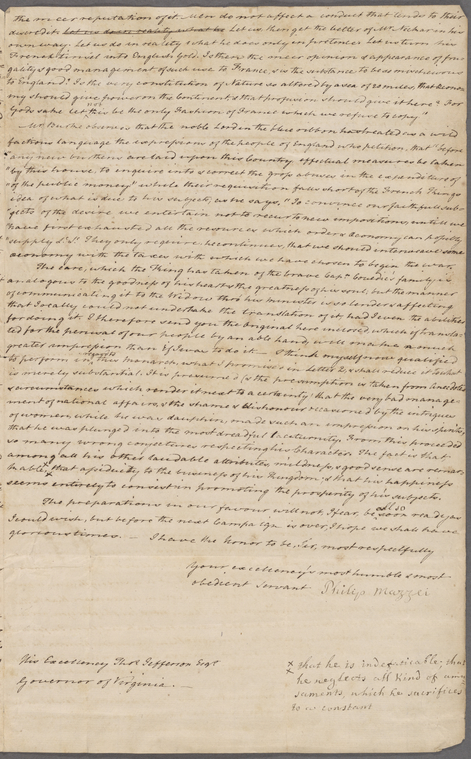 the mere reputation of it. Men do not affect a conduct that tends to their
discredit. Let us then get the better of Mr. Neckar in his
own way. Let us do in reality what he does only in pretence. Let us turn his
French tinsel into English Gold. Is then the mere opinion & appearance of fru
gality & good management of such use to France, & is the substance to be so mischievous
to England? Is the very constitution of Nature so altered by a sea of 20 miles, that œcono
my should give power on the Continent, & that profusion should give it here? For
God's sake let not this be the only Fashion of France which we refuse to copy."
Mr. Burke observes that the noble Lord in the blue ribbon has treated as a wild
factious language the expressions of the people of England who petition, that "before
"any new burthens are laid upon this Country effectual measures be taken
"by this house, to inquire into & correct the gross abuses in the expenditure of
"of the public money" while their requisition falls short of the French King's
idea of what is due to his subjects, as he says, "To convince our faithful sub-
jects of the desire we entertain not to recur to new impositions, until we
have first exhausted all the resources which order & œconomy can possibly
supply &c." They only require, he continues, that we should intersperse some
œconomy with the taxes with which we have chosen to begin the war.
The care, which the King has taken of the brave Capn. family, is
analogous to the goodness of his heart & the greatness of his soul, but the manner
of communicating it to the Widow thro' his minister is so tender & affecting
that I really could not undertake the translation of it, had I even the abilities
for doing it. I therefore send you the original here inclosed, which if transla-
ted for the perusal of our people by an able hand, will make a much
greater impression than if I was to do it — I think myself now qualified
to perform respects this monarch, what I promised in Letter 2, & shall reduce it to what
is merely substantial. It is presumed (& the presumption is taken from anecdotes &
circumstances which render it next to a certainty) that the very bad manage-
ment of national affairs, & the shame & dishonour occasioned by the intrigues
of women while he was dauphin, made such an impression on his spirits,
that he was plunged into the most dreadful taciturnity. From this proceeded
so many wrong conjectures respecting his Character. The fact is that
among all his other laudable attributes mildness, & good sense are remar-
kable; x that assiduity to the business of his Kingdom, & that his happiness
seems entirely to consist in promoting the prosperity of his subjects.
The preparations in our favour will not, I fear, be so soon ready as
I could wish, but before the next Campaign is over, I hope we shall have
glorious news. — I have the honor to be, Sir, most respectfully
Your excellency's most humble & most
obedient Servant Philip Mazzei
His Excellency Thos. Jefferson Esqr.
Governor of Virginia. —
x that he is indefatigable; that
x he neglects all kind of amu
sements, which he sacrifices
to a constant